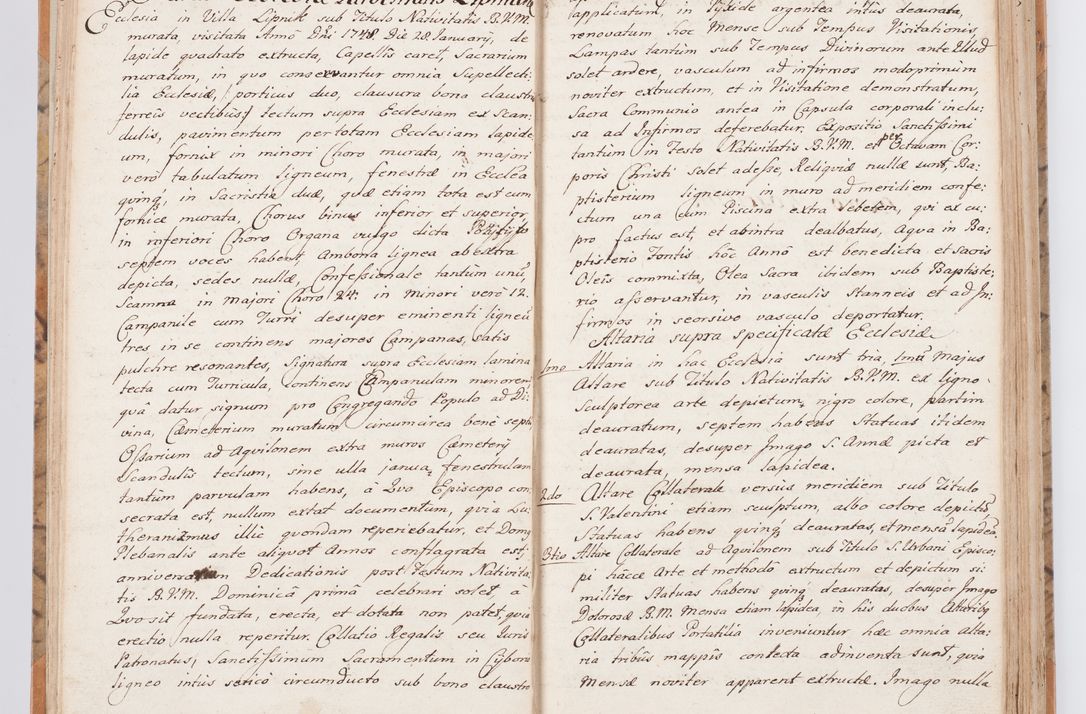 Ecclesia in Villa Lipnik sub Titulo Nativitatis B.V.M.
murata, visitata Annô Dñi 1748. Die 28 January, de
lapide quadrato extructa, Capellis caret, Sacrarium
muratum, in quo conservantur omnia Supellecti-
lia Ecclesiæ, porticus duo, clausura bona claustris
ferreis vectibusq tectum supra Ecclesiam ex Scan-
dulis, pavimentum per totam Ecclesiam lapide
um, fornix in minori Choro murata, in majori
verò tabulatum ligneum, fenestræ in Ecclea
quinq, in Sacristia duæ, quæ etiam tota est cum
fornice murata, Chorus binus inferior et superior,
in inferiori Choro Organa vulgo dicta Pozytyw
septem voces habent, Ambona lignea ab extra
depicta, sedes nullæ, Confessionale tantum unũ,
Scamna in majori Choro 24. in minori verò 12.
Campanile cum Turri desuper eminenti ligneũ
tres in se continens majores Campanas, satis
pulchre resonantes, Signatura supra Ecclesiam lamina
tecta cum Turricula, continens Campanulam minorem
quâ datur signum pro Congregando Populo ad Di-
vina, Cæmeterium muratum circumcirca benè septũ
Ossarium ad Aquilonem extra muros Cæmeterÿ
Scandulis tectum, sine ulla janua, fenestrulam
tantùm parvulam habens, à Quo Episcopo con-
secrata est, nullum extat documentum, quia Lu-
theranismus illic quondam reperiebatur, et Domq
Plebanalis ante aliquot Annos conflagrata est;
anniversarium Dedicationis post Festum Nativita-
tis B.V.M. Dominicâ primâ celebrari solet, à
Quo sit fundata, erecta, et dotata non patet, quia
erectio nulla reperitur. Collatio Regalis seu Juris
Patronatus, Sanctissimum Sacramentum in Cyborio
ligneo intùs sericô circumducto sub bono claustro
applicatum, in Pyxide argentea intùs deaurata,
renovatum hôc Mense sub Tempus Visitationis,
Lampas tantùm sub Tempus Divinorum ante Illud
solet ardere, vasculum ad infirmos modoprimùm
noviter extructum, et in Visitatione demonstratum,
Sacra Communio antea in Capsula corporali inclu-
sa ad Infirmos deferebatur, Expositio Sanctissimi
tantùm in Festo Nativitatis B.V.M. et per Octavam Cor-
poris Christi solet adesse, Reliquiæ nullæ sunt, Ba-
ptisterium ligneum in muro ad meridiem confe-
ctum una cum Piscina extra lebetem, qui ex cu-
pro factus est, et abintra dealbatus, Aqua in Ba-
ptisterio Fontis hôc Annô est benedicta et Sacris
Oleis commixta, Olea Sacra ibidem sub Baptiste-
rio asservantur, in vasculis Stanneis et ad In-
firmos in seorsivo vasculo deportatur.
Altaria supra specificatæ Ecclesiæ
1mo Altaria in hac Ecclesiâ sunt tria, 1mũ Majus
Altare sub Titulo Nativitatis B.V.M. ex ligno
Sculptorea arte depictum, nigro colore, partim
deauratum, septem habens Statuas itidem
deauratas, desuper Imago S. Annæ picta et
deaurata, mensa lapidea.
2do Altare Collaterale versùs meridiem sub Titulo
S. Valentini etiam sculptum, albo colore depictũ,
Statuas habens quinq deauratas, et mensã lapideã.
3tio Altare Collaterale ad Aquilonem sub Titulo S. Urbani Episco-
pi hâcce Arte et methodô extructum et depictum si-
militer Statuas habens quinq deauratas, desuper Imago
Dolorosæ B.M. Mensa etiam lapidea, in his duobus Altaribq
Collateralibus Portatilia inveniuntur hæc omnia Alta-
ria tribùs mappis contecta adinventa sunt, quia
Mensæ noviter apparent extructæ. Imago nulla